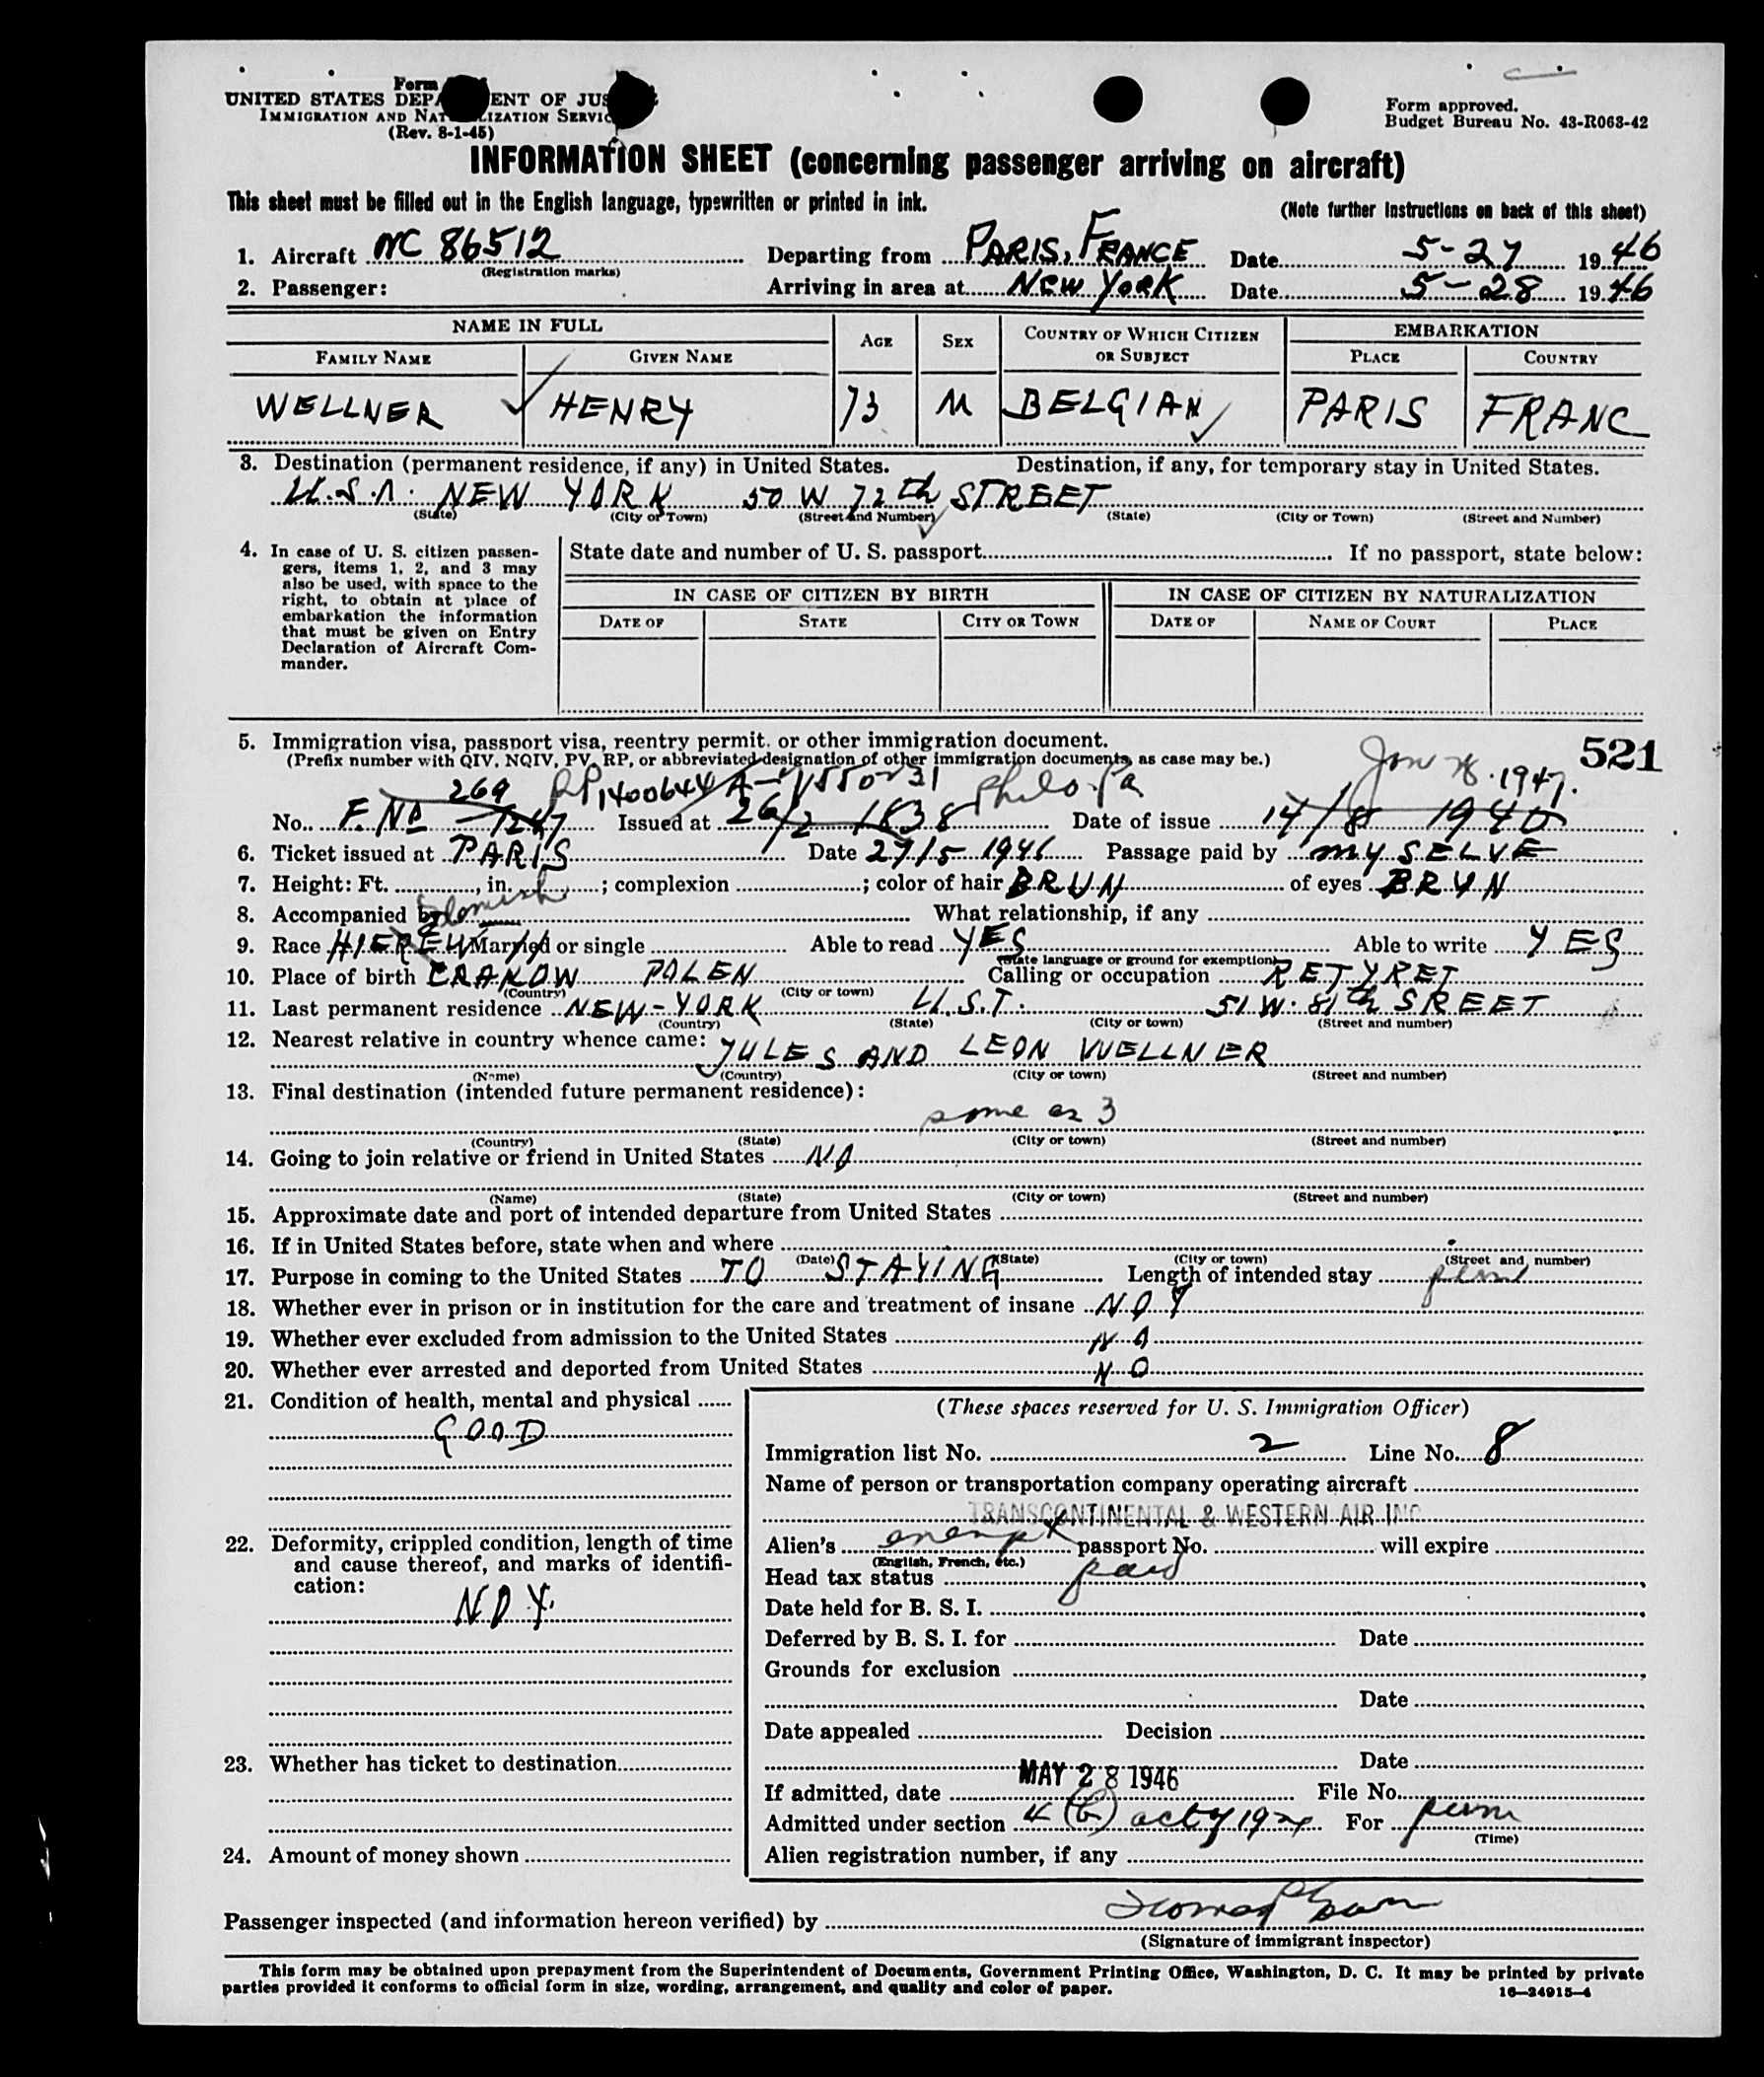 Form
UNITED STATES DEPA ENT OF JUS
IMMIGRATION AND NAT LIZATION SERVIC
(Rev. 8-1-45)
Form approved.
Budget Bureau No. 43-R063-42
INFORMATION SHEET (concerning passenger arriving on aircraft)
This sheet must be filled out in the English language, typewritten or printed in ink.
(Note further instructions on back of this sheet)
1. Aircraft NC 86512 Departing from PARIS, FRANCE Date 5-27 1946
(Registration marks)
2. Passenger: Arriving in area at NEW YORK Date 5-28 1946
NAME IN FULL AGE SEX COUNTRY OF WHICH CITIZEN OR SUBJECT EMBARKATION
FAMILY NAME GIVEN NAME PLACE COUNTRY
WELLNER HENRY 73 M BELGIAN PARIS FRANC
3. Destination (permanent residence, if any) in United States. Destination, if any, for temporary stay in United States.
U.S.A. NEW YORK 50 W 72th STREET
(State) (City or Town) (Street and Number) (State) (City or Town) (Street and Number)
4. In case of U. S. citizen passen-
gers, items 1, 2, and 3 may
also be used, with space to the
right, to obtain at place of
embarkation the information
that must be given on Entry
Declaration of Aircraft Com-
mander.
State date and number of U. S. passport If no passport, state below:
IN CASE OF CITIZEN BY BIRTH IN CASE OF CITIZEN BY NATURALIZATION
DATE OF STATE CITY OR TOWN DATE OF NAME OF COURT PLACE
5. Immigration visa, passport visa, reentry permit, or other immigration document.
(Prefix number with QIV, NQIV, PV, RP, or abbreviated designation of other immigration documents, as case may be.)
521
269 RP 1400644 Phila. Pa Jan 1947.
No. F. No 1247 Issued at 26/2 1838 Date of issue 14/8 1940
6. Ticket issued at PARIS Date 27/5 1946 Passage paid by MY SELVE
7. Height: Ft. , in. ; complexion ; color of hair BRUN of eyes BRUN
8. Accompanied by What relationship, if any
9. Race HIEREW Married or single Able to read YES Able to write YES
(State language or ground for exemption)
10. Place of birth CRANOW POLEN Calling or occupation RETYRET
(Country) (City or town)
11. Last permanent residence NEW-YORK U.S.T. 51 W. 81th SREET
(Country) (State) (City or town) (Street and number)
12. Nearest relative in country whence came: JULES AND LEON WELLNER
(Name) (Country) (City or town) (Street and number)
13. Final destination (intended future permanent residence):
same as 3
(Country) (State) (City or town) (Street and number)
14. Going to join relative or friend in United States NO
(Name) (State) (City or town) (Street and number)
15. Approximate date and port of intended departure from United States
16. If in United States before, state when and where
(Date) (State) (City or town) (Street and number)
17. Purpose in coming to the United States TO STAYING Length of intended stay perm
18. Whether ever in prison or in institution for the care and treatment of insane NOT
19. Whether ever excluded from admission to the United States NO
20. Whether ever arrested and deported from United States NO
21. Condition of health, mental and physical
GOOD
22. Deformity, crippled condition, length of time
and cause thereof, and marks of identifi-
cation:
NOT.
23. Whether has ticket to destination
24. Amount of money shown
(These spaces reserved for U. S. Immigration Officer)
Immigration list No. 2 Line No. 8
Name of person or transportation company operating aircraft
TRANSCONTINENTAL & WESTERN AIR INC
Alien's exempt passport No. will expire
(English, French, etc.)
Head tax status paid
Date held for B. S. I.
Deferred by B. S. I. for Date
Grounds for exclusion
Date
Date appealed Decision
Date
If admitted, date MAY 28 1946 File No.
Admitted under section 4 (b) act of 1924 For perm
(Time)
Alien registration number, if any
Passenger inspected (and information hereon verified) by
(Signature of immigrant inspector)
This form may be obtained upon prepayment from the Superintendent of Documents, Government Printing Office, Washington, D. C. It may be printed by private
parties provided it conforms to official form in size, wording, arrangement, and quality and color of paper.
16—24915-4